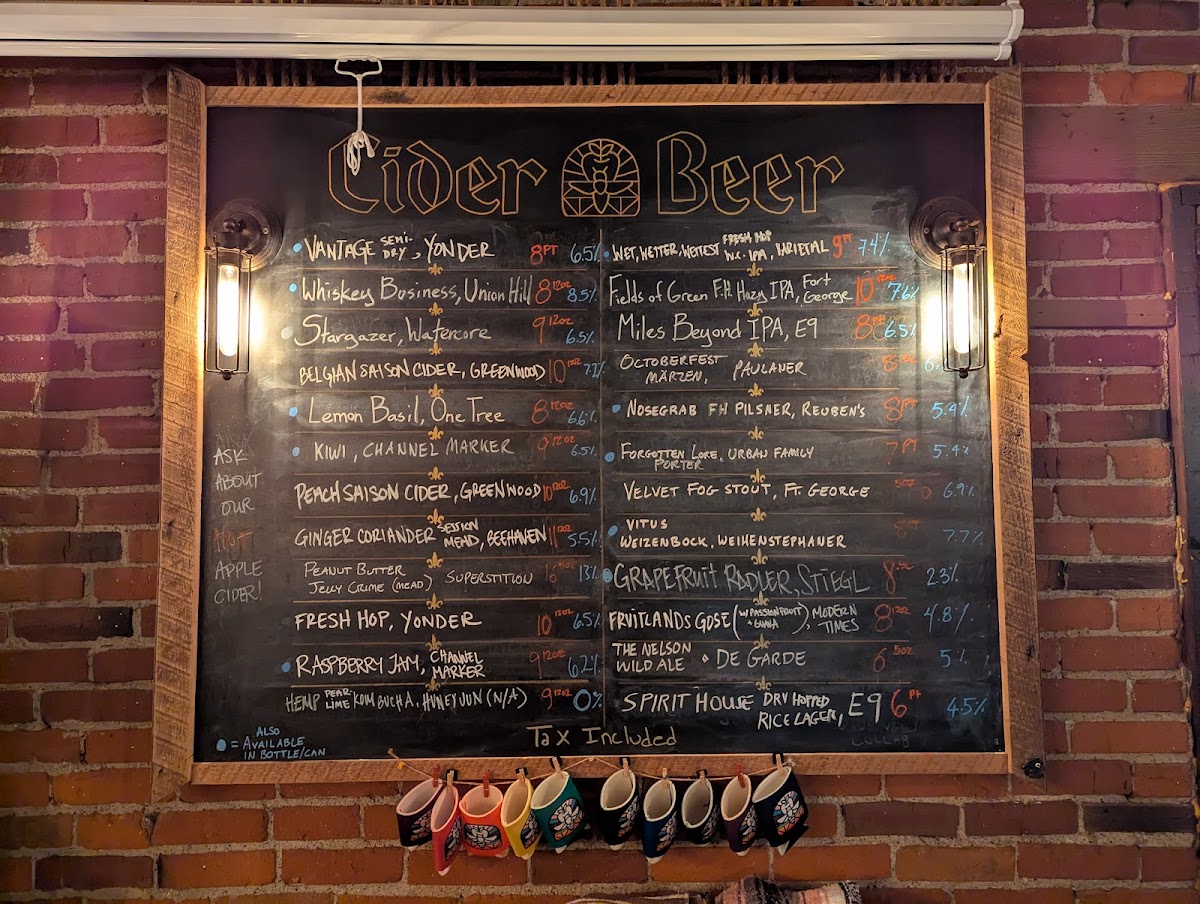 Cider Beer
VANTAGE SEMI-DRY, YONDER 8 PT 6.5%
Whiskey Business, Union Hill 8 12oz 8.5%
Stargazer, Watercore 9 12oz 6.5%
BELGIAN SAISON CIDER, GREENWOOD 10 12oz 7.2%
Lemon Basil, One Tree 8 12oz 6.6%
KIWI, CHANNEL MARKER 9 12oz 6.5%
PEACH SAISON CIDER, GREENWOOD 10 12oz 6.9%
GINGER CORIANDER SESSION MEAD, BEEHAVEN 11 12oz 5.5%
PEANUT BUTTER
JELLY CRIME (MEAD) SUPERSTITION 16 5oz 13%
FRESH HOP, YONDER 10 13oz 6.5%
RASPBERRY JAM, CHANNEL MARKER 9 12oz 6.2%
HEMP PEAR LIME KOMBUCHA, HONEY JUN (N/A) 9 12oz 0%
WET, WETTER, WETTEST FRESH HOP W.C. IPA, VARIETAL 9 PT 7.4%
Fields of Green F.H. Hazy IPA, Fort George 10 12oz 7.6%
Miles Beyond IPA, E9 8 PT 6.5%
OCTOBERFEST
MÄRZEN, PAULANER 8
NOSEGRAB FH PILSNER, REUBEN'S 8 PT 5.4%
FORGOTTEN LORE, URBAN FAMILY 7 PT 5.4%
PORTER
VELVET FOG STOUT, FT. GEORGE 6.9%
VITUS
WEIZENBOCK, WEIHENSTEPHANER 7.7%
GRAPEFRUIT RADLER, STIEGL 8 2.3%
FRUITLANDS GOSE (W/PASSIONFRUIT + GUAVA), MODERN TIMES 8 12oz 4.8%
THE NELSON
WILD ALE DE GARDE 6 5oz 5%
SPIRIT HOUSE DRY HOPPED
RICE LAGER, E9 6 PT 4.5%
COLLAB
ASK
ABOUT
OUR
HOT
APPLE
CIDER!
ALSO
= AVAILABLE
IN BOTTLE/CAN
Tax Included